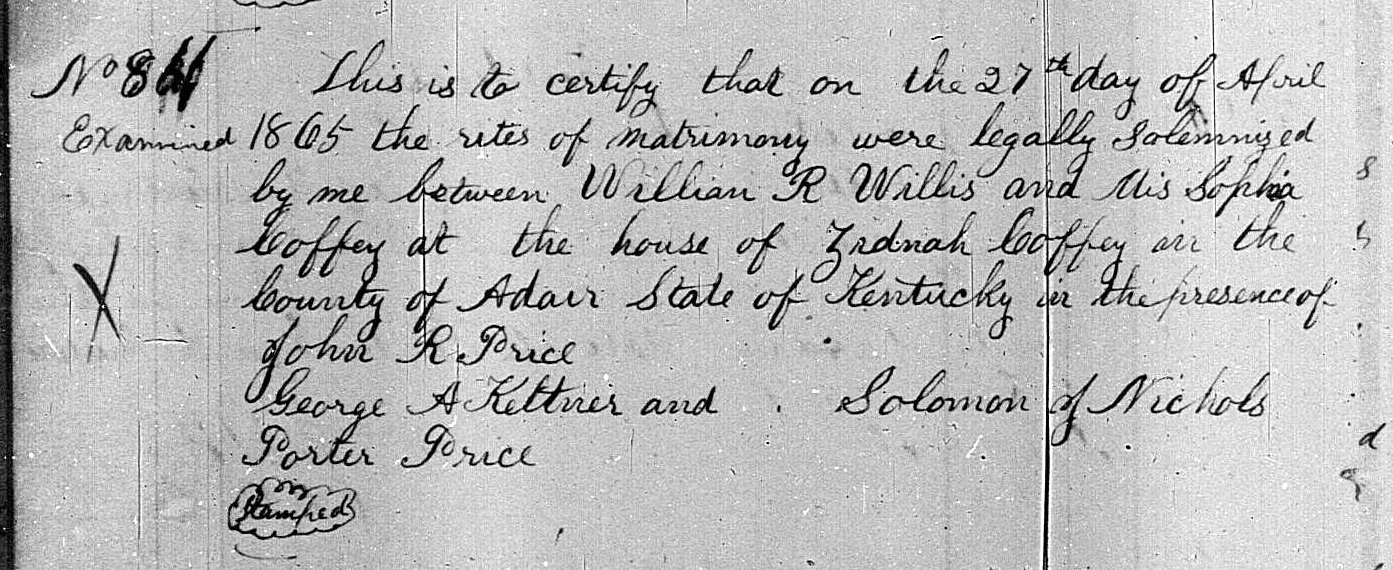 No 841 This is to certify that on the 27th day of April
Examined 1865 the rites of matrimony were legally Solemnized
by me between Willian R Willis and Mis Sophia
Coffey at the house of Zednah Coffey in the
County of Adair State of Kentucky in the presence of
John R Price
George A Keltner and Solomon J Nichols
Porter Price
Stamped